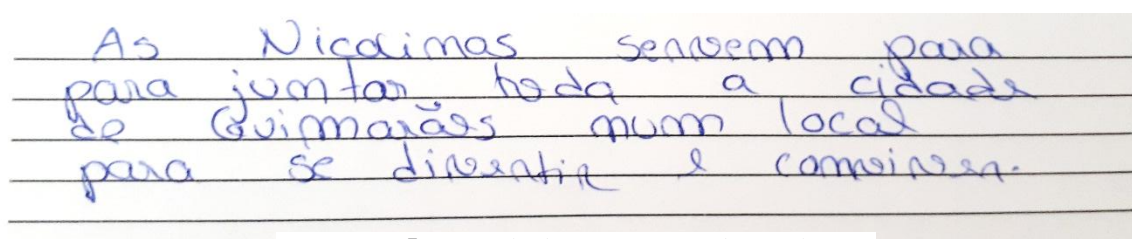 As Nicolinas servem para
para juntar toda a cidade
de Guimarães num local
para se divertir e conviver.